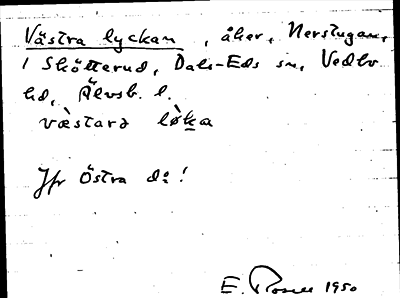 Västra lyckan, åker, Nerstugan,
1 Skötterud, Dals-Eds sn, Vedbo
hd, Älvsb. l.
væ̀stara lø̀ka
Jfr Östra d:o!
E. Rosell 1950